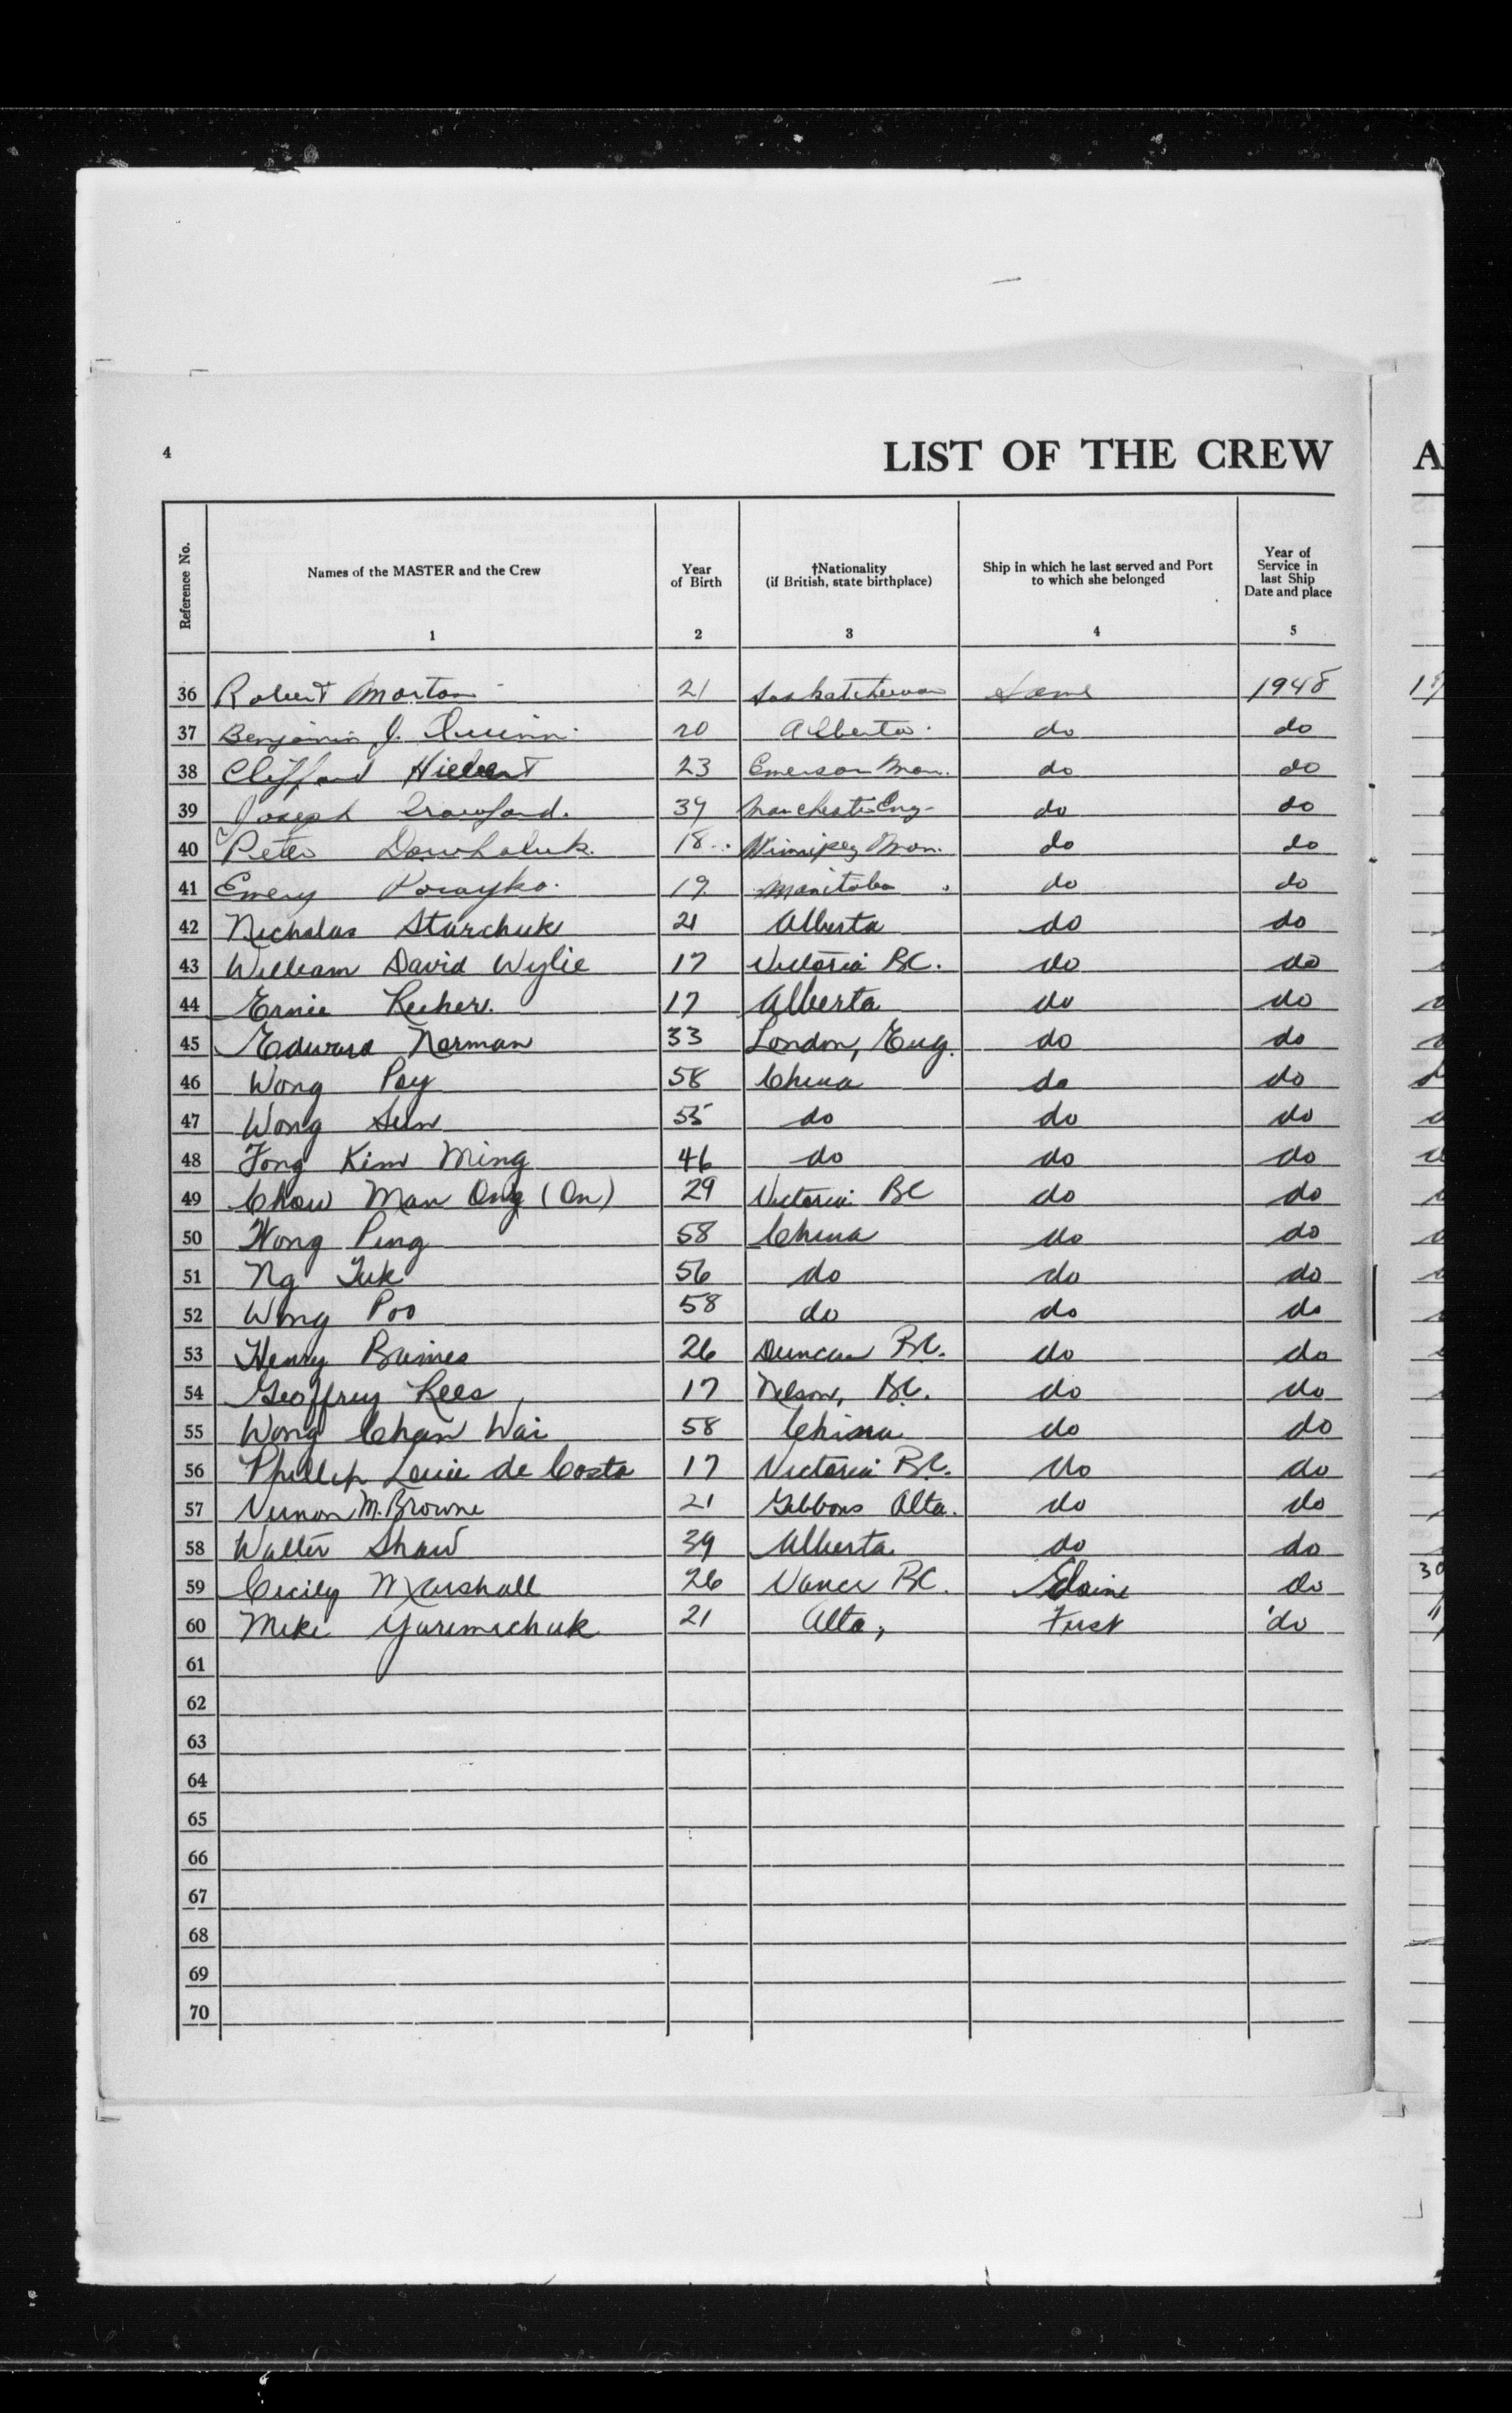 4
LIST OF THE CREW
A
Reference No.
Names of the MASTER and the Crew
1
Year of Birth
2
†Nationality (if British, state birthplace)
3
Ship in which he last served and Port to which she belonged
4
Year of Service in last Ship Date and place
5
36 Robert Morton 21 Saskatchewan Same 1948
37 Benjamin J. Quinn 20 Alberta do do
38 Clifford Hiebert 23 Emerson Man. do do
39 Joseph Crawford. 39 Manchester Eng- do do
40 Peter Dowhaluk. 18 Winnipeg Man. do do
41 Emery 19 Manitoba do do
42 Nicholas Starchuk 21 Alberta do do
43 William David Wylie 17 Victoria BC. do do
44 Ernie 17 Alberta do do
45 Edward Norman 33 London, Eng. do do
46 Wong Poy 58 China do do
47 Wong Sun 55 do do do
48 Fong Kim Ming 46 do do do
49 Chow Man Ong (On) 29 Victoria BC do do
50 Wong Ping 58 China do do
51 Ng Tuk 56 do do do
52 Wong Poo 58 do do do
53 Henry 26 Duncan B.C. do do
54 Geoffrey Rees 17 Nelson, B.C. do do
55 Wong Chan Wai 58 China do do
56 Phillip Louie de Costa 17 Victoria B.C. do do
57 Vernon M. Browne 21 Gibbons Alta. do do
58 Walter Shaw 39 Alberta. do do
59 Cecily Marshall 26 Vancr BC. Elaine do
60 Mike Yuremchuk 21 Alta, First do
61
62
63
64
65
66
67
68
69
70